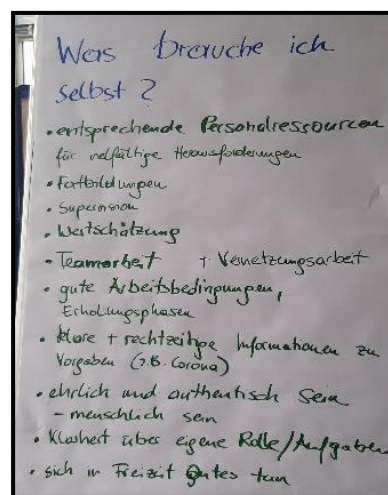 Was brauche ich
selbst?
• entsprechende Personalressourcen
für vielfältige Herausforderungen
• Fortbildungen
• Supervision
• Wertschätzung
• Teamarbeit + Vernetzungsarbeit
• gute Arbeitsbedingungen,
Erholungsphasen
• klare + rechtzeitige Informationen zu
Vorgaben (z.B. Corona)
• ehrlich und authentisch sein
- menschlich sein
• Klarheit über eigene Rolle/Aufgaben
• sich in Freizeit Gutes tun